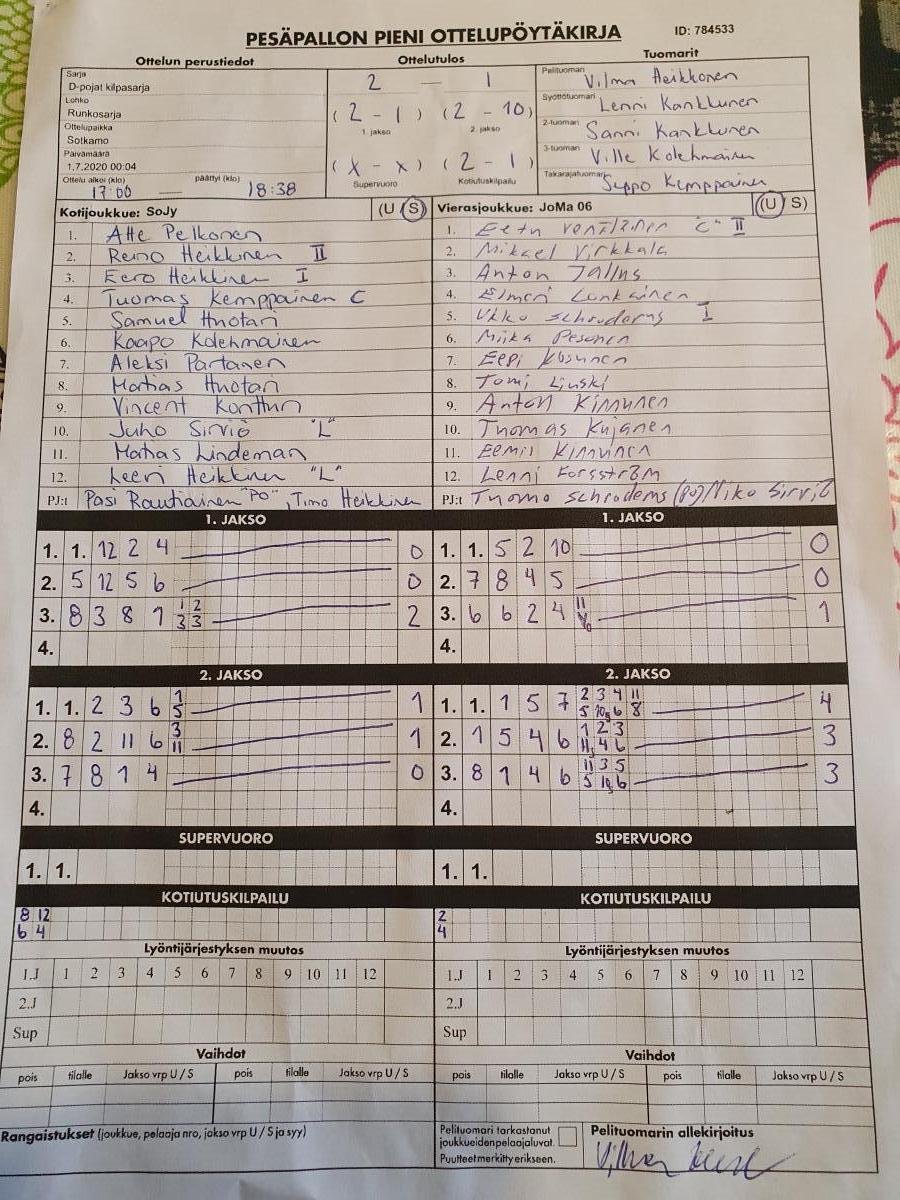 PESÄPALLON PIENI OTTELUPÖYTÄKIRJA ID: 784533
Ottelun perustiedot Ottelutulos Tuomarit
Sarja
D-pojat kilpasarja
Lohko
Runkosarja
Ottelupaikka
Sotkamo
Päivämäärä
1.7.2020 00:04
Ottelu alkoi (klo) päättyi (klo)
17:00 — 18:38
2 — 1
(2 - 1) (2 - 10)
1. jakso 2. jakso
(x - x) (2 - 1)
Supervuoro Kotiutuskilpailu
Pelituomari Vilma Heikkonen
Syöttötuomari Lenni Kankkunen
2-tuomari Sanni Kankkunen
3-tuomari Ville Kolehmainen
Takarajatuomari Seppo Kemppainen
Kotijoukkue: SoJy (U S)
1. Atte Pelkonen
2. Reino Heikkinen II
3. Eero Heikkinen I
4. Tuomas Kemppainen C
5. Samuel Huotari
6. Kaapo Kolehmainen
7. Aleksi Partanen
8. Matias Huotari
9. Vincent Konttun
10. Juho Sirviö "L"
11. Matias Lindeman
12. Leevi Heikkinen "L"
PJ:t Pasi Rautiainen "PO", Timo Heikkinen
Vierasjoukkue: JoMa 06 (U S)
1. Eetu "C" II
2. Mikael Virkkala
3. Anton
4. Elmeri
5. Ukko Schroderus I
6. Miika Pesonen
7. Eepi Kosunen
8. Tomi Liuski
9. Anton Kinnunen
10. Tuomas Kujanen
11. Eemil Kinnunen
12. Lenni Forsström
PJ:t Tuomo Schroderus (PO) Niko Sirviö
1. JAKSO
1. 1. 12 2 4 0
2. 5 12 5 6 0
3. 8 3 8 1 1 2 2
3 3
4.
1. JAKSO
1. 1. 5 2 10 0
2. 7 8 4 5 0
3. 6 6 2 4 11 1
4.
2. JAKSO
1. 1. 2 3 6 1 1
5
2. 8 2 11 6 3 1
11
3. 7 8 1 4 0
4.
2. JAKSO
1. 1. 1 5 7 2 3 4 11 4
5 10 6 8
2. 1 5 4 6 1 2 3 3
11 4 6
3. 8 1 4 6 11 3 5 3
5 10 6
4.
SUPERVUORO SUPERVUORO
1. 1. 1. 1.
KOTIUTUSKILPAILU KOTIUTUSKILPAILU
8 12 2
6 4 4
Lyöntijärjestyksen muutos Lyöntijärjestyksen muutos
1.J 1 2 3 4 5 6 7 8 9 10 11 12 1.J 1 2 3 4 5 6 7 8 9 10 11 12
2.J 2.J
Sup Sup
Vaihdot Vaihdot
pois tilalle Jakso vrp U / S pois tilalle Jakso vrp U / S pois tilalle Jakso vrp U / S pois tilalle Jakso vrp U / S
Rangaistukset (joukkue, pelaaja nro, jakso vrp U / S ja syy)
Pelituomari tarkastanut
joukkueiden pelaajaluvat.
Puutteet merkitty erikseen.
Pelituomarin allekirjoitus